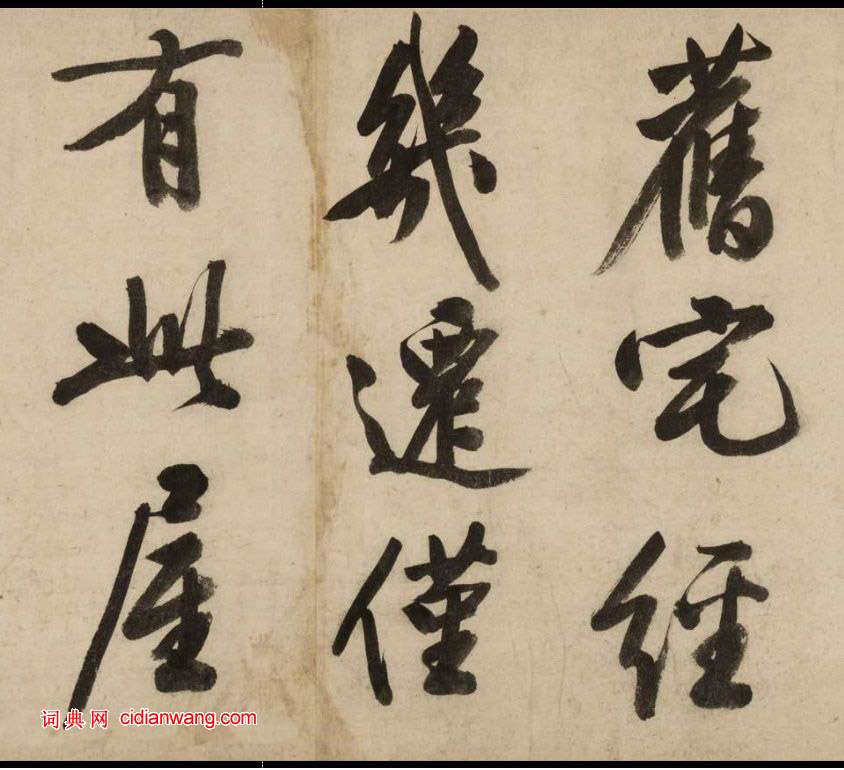 舊宅經
幾遷僅
有此屋
词典网 cidianwang.com